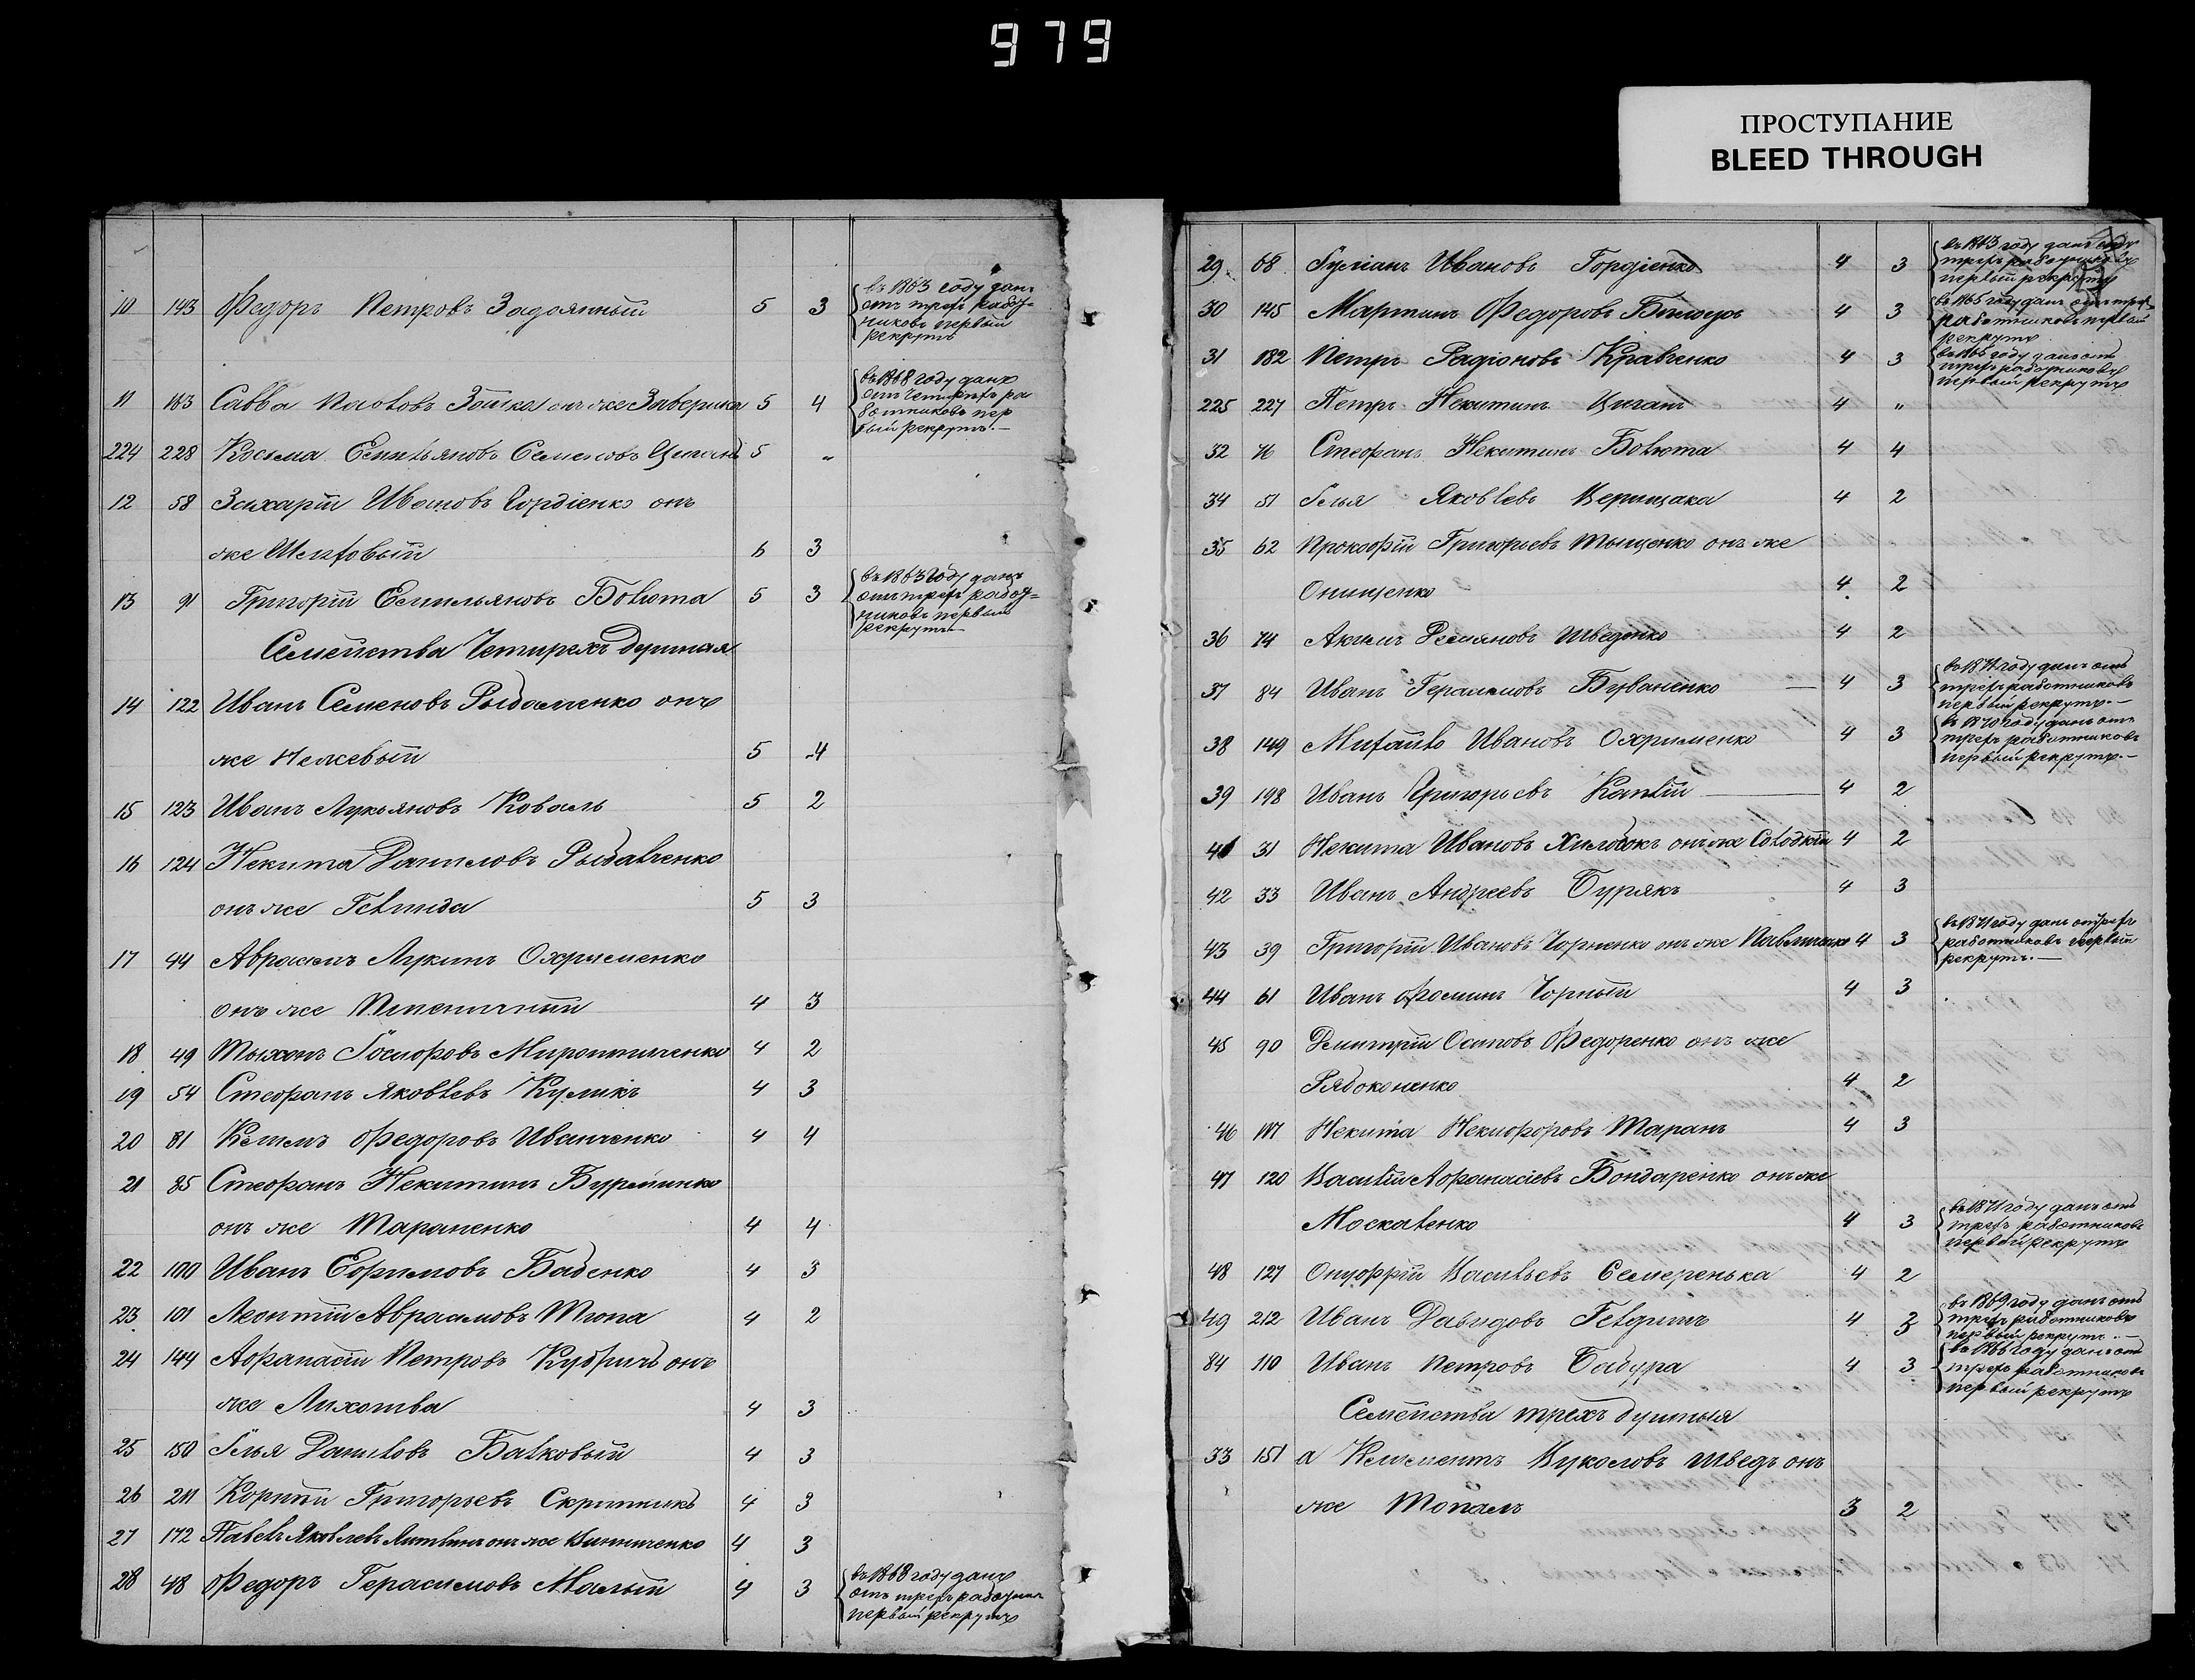 979
ПРОСТУПАНИЕ
BLEED THROUGH
10 143 Федоръ Петровъ Задоянный 5 3 въ 1863 году данъ
отъ трехъ работ-
никовъ первый
рекрутъ
11 163 Савва Павловъ онъ же Заверика 5 4 въ 1868 году данъ
отъ четырехъ ра
ботниковъ пер
вый рекрутъ.—
224 228 Косьма Емельяновъ 5 "
12 58 Захарій Ивановъ Гордіенко онъ
же 6 3
13 91 Григорій Емельяновъ Болюта 5 3 въ 1863 году данъ
отъ трехъ работ=
никовъ первый
рекрутъ—
Семейства Четырехъ душныя
14 122 Иванъ Семеновъ онъ
же Нежевый 5 4
15 123 Иванъ Лукьяновъ Коваль 5 2
16 124 Некита Даниловъ Рыбалченко
онъ же 5 3
17 44 Авраамъ Лукинъ Охрименко
онъ же Пшеничный 4 3
18 49 Тыхонъ Мирошниченко 4 2
19 54 Стефанъ Яковлевъ Куликъ 4 3
20 81 Федоровъ Иванченко 4 4
21 85 Стефанъ Некитинъ
онъ же Тараненко 4 4
22 100 Иванъ Ефимовъ Бабенко 4 3
23 101 Леонтій Авраамовъ Тюпа 4 2
24 144 Афанасій Петровъ онъ
же Лихотва 4 3
25 150 Илья Даниловъ Балковый 4 3
26 211 Корній Григорьевъ Скрипникъ 4 3
27 172 Павелъ Яковлевъ Литвинъ онъ же Винниченко 4 3
28 48 Федоръ Герасимовъ Малый 4 3 въ 1868 году данъ
отъ трехъ
первый рекрутъ
29 68 Иванов Гордіенко 4 3 въ 1863 году данъ
трехъ
первый рекрутъ
30 145 Мартинъ Федоровъ 4 3 въ 1865 году данъ отъ трехъ
работниковъ первый
рекрутъ
31 182 Петръ Радіоновъ Кравченко 4 3 въ 1865 году данъ отъ
трехъ работниковъ
первый рекрутъ
225 227 Петръ Некитинъ Циганъ 4 "
32 76 Стефанъ Некитинъ Болюта 4 4
34 51 Илья Яковлевъ Верещака 4 2
35 62 Прокофій Григорьевъ Тыщенко онъ же
Онищенко 4 2
36 74 Акимъ Демяновъ Шведенко 4 2
37 84 Иванъ Герасимовъ Буваненко 4 3 въ 1871 году данъ отъ
трехъ работниковъ
первый рекрутъ.—
38 149 Михайло Ивановъ Охрименко 4 3 въ 1870 году данъ отъ
трехъ работниковъ
первый рекрутъ.—
39 198 Иванъ Григорьевъ 4 2
41 31 Некита Ивановъ онъ же Солодкій 4 2
42 33 Иванъ Андреевъ Бурякъ 4 3
43 39 Григорій Ивановъ Чорненко онъ же Павличенко 4 3 въ 1871 году данъ трехъ
работниковъ первый
рекрутъ.—
44 61 Иванъ Фоминъ Чорный 4 3
45 90 Дмитрій Осиповъ Федоренко онъ же
Рябоконенко 4 2
46 117 Некита Некифоровъ Таранъ 4 3
47 120 Василій Афанасіевъ Бондаренко онъ же
Москаленко 4 3 въ 1871 году данъ отъ
трехъ работниковъ
первый рекрутъ
48 127 Онуфрій Васильевъ Семеренька 4 2
49 212 Иванъ Давидовъ 4 3 въ 1869 году данъ отъ
трехъ работниковъ
первый рекрутъ.—
84 110 Иванъ Петровъ Бабура 4 3 въ 1866 году данъ отъ
трехъ работниковъ
первый рекрутъ
Семейства трехъ душныя
33 151 а Климентъ Вуколовъ Шведъ онъ
же Топалъ 3 2